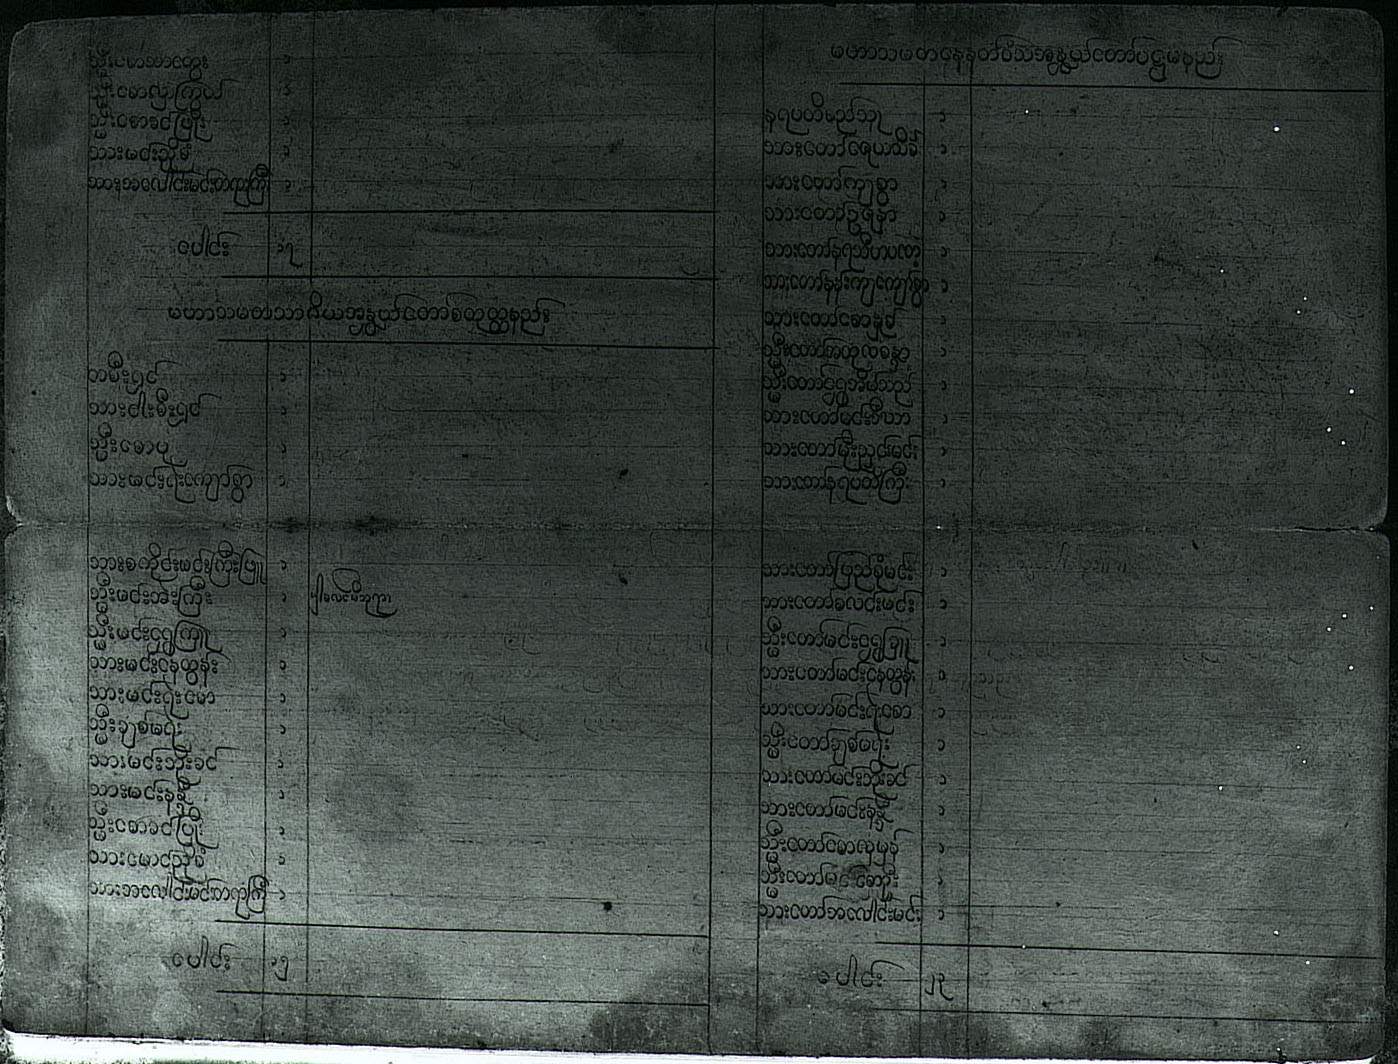 သ္မီးမောသာထွေး ၁
သ္မီးမောလှကြွယ် ၁
သ္မီးစောခင်ဖြိုး ၁
သားမင်းညိုမဲ ၁
သားအလောင်းမင်းတရားကြီး ၁
ပေါင်း ၁၇
မဟာသမတသာကိယအနွှယ်တော်စတုတ္ထနည်း
တမီးရှင် ၁
သားငါးမီးရှင် ၁
သ္မီးမောပု ၁
သားမင်းရဲကျော်စွာ ၁
သားစကိုင်းမင်းကြီးဖြူ ၁
သ္မီးမင်းအိမ်ကြီး ၁
သ္မီးမင်းရွှေကြူ ၁
သားမင်းနေထွန်း ၁
သားမင်းရဲမော ၁
သ္မီးချစ်မရိုး ၁
သားမင်းသိုးခင် ၁
သားမင်းနန္ဒ ၁
သ္မီးစောခင်ဖြိုး ၁
သားမောင်ညိုမဲ ၁
သားအလောင်းမင်းတရားကြီး ၁
ပေါင်း ၁၅
မဟာသမတဝိနန္တမိသအနွှယ်တော်ပဌမနည်း
နရပတိစည်သူ ၁
သားတော်ဇေယသိင်္ခ ၁
သားတော်ကျစွာ ၁
သားတော်ဥဇနာ ၁
သားတော်နရသီဟပတေ့ ၁
သားတော်နန်းကျကျော်စွာ ၁
သားတော်စောနှစ် ၁
သ္မီးတော်
သ္မီးတော်ရွှေအိမ်သည် ၁
သားတော်မင်းဒီဃာ ၁
သားတော်မိုးညှင်းမင်း ၁
သားတော်နရပတိကြီး ၁
သားတော်ပြည်စိုးမင်း ၁
သားတော်စလင်းမင်း ၁
သ္မီးတော်မင်းရွှေခြူ ၁
သားတော်မင်းနေထွန်း ၁
သားတော်မင်းရဲစော ၁
သ္မီးတော်ချစ်မရိုး ၁
သားတော်မင်းသိုးခင် ၁
သားတော်မင်းနန္ဒ ၁
သ္မီးတော်
သ္မီးတော်
သားတော်အလောင်းမင်း ၁
ပေါင်း ၂၃